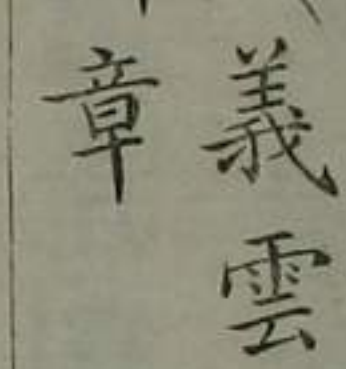 義雲
章